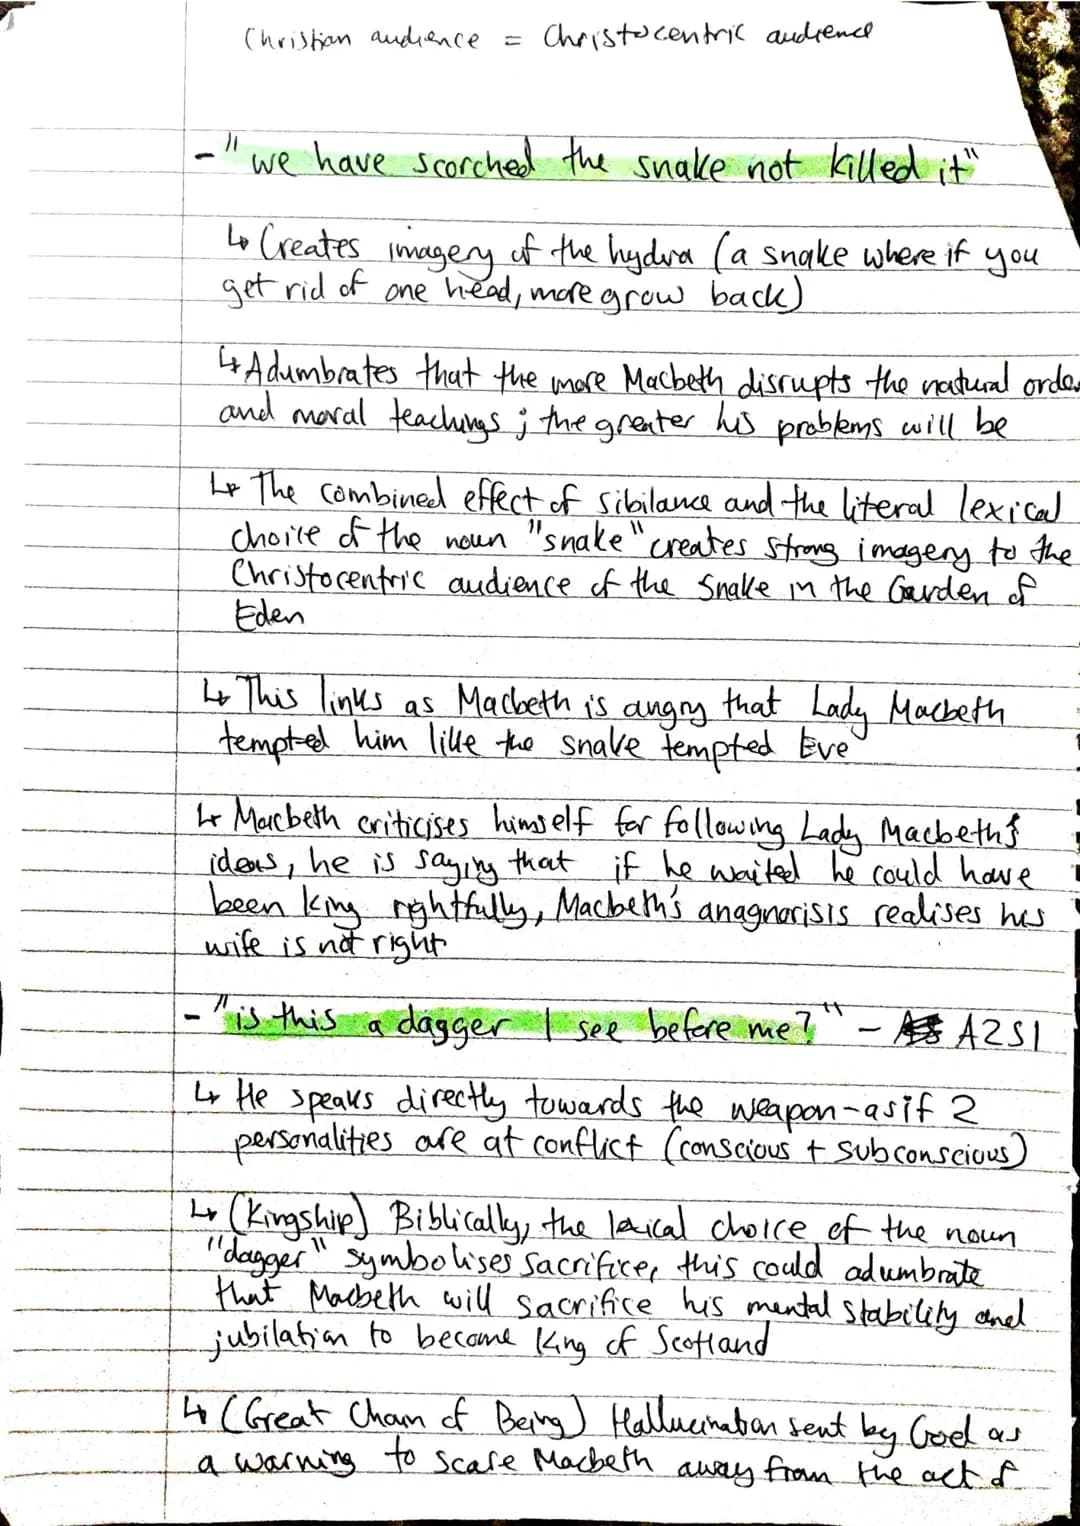 Christian audience = Christocentric audience
- "we have scorched the snake not killed it"
↳ Creates imagery of the hydra (a snake where if you
get rid of one head, more grow back)
↳ Adumbrates that the more Macbeth disrupts the natural order
and moral teachings ; the greater his problems will be
↳ The combined effect of sibilance and the literal lexical
choice of the noun "snake" creates strong imagery to the
Christocentric audience of the snake in the Garden of
Eden
↳ This links as Macbeth is angry that Lady Macbeth
tempted him like the snake tempted Eve
↳ Macbeth criticises himself for following Lady Macbeth's
ideas, he is saying that if he waited he could have
been king rightfully, Macbeth's anagnorisis realises his
wife is not right
- "is this a dagger I see before me?" - A2S1
↳ He speaks directly towards the weapon - as if 2
personalities are at conflict (conscious + subconscious)
↳ (Kingship) Biblically, the lexical choice of the noun
"dagger" symbolises sacrifice, this could adumbrate
that Macbeth will sacrifice his mental stability and
jubilation to become King of Scotland
↳ (Great Chain of Being) Hallucination sent by God as
a warning to scare Macbeth away from the act of